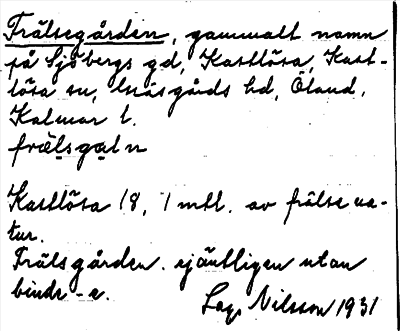 Frälsegården, gammalt namn
på Sjöbergs gd, Kastlösa, Kast-
lösa sn, Möre hd, Öland,
Kalmar l.
frälsgaḷn
Kastlösa 18, 1 mtl. av frälse na-
tur.
Frälsgården. ejäntligen utan
binde-e.
Lag. Nilsson 1931